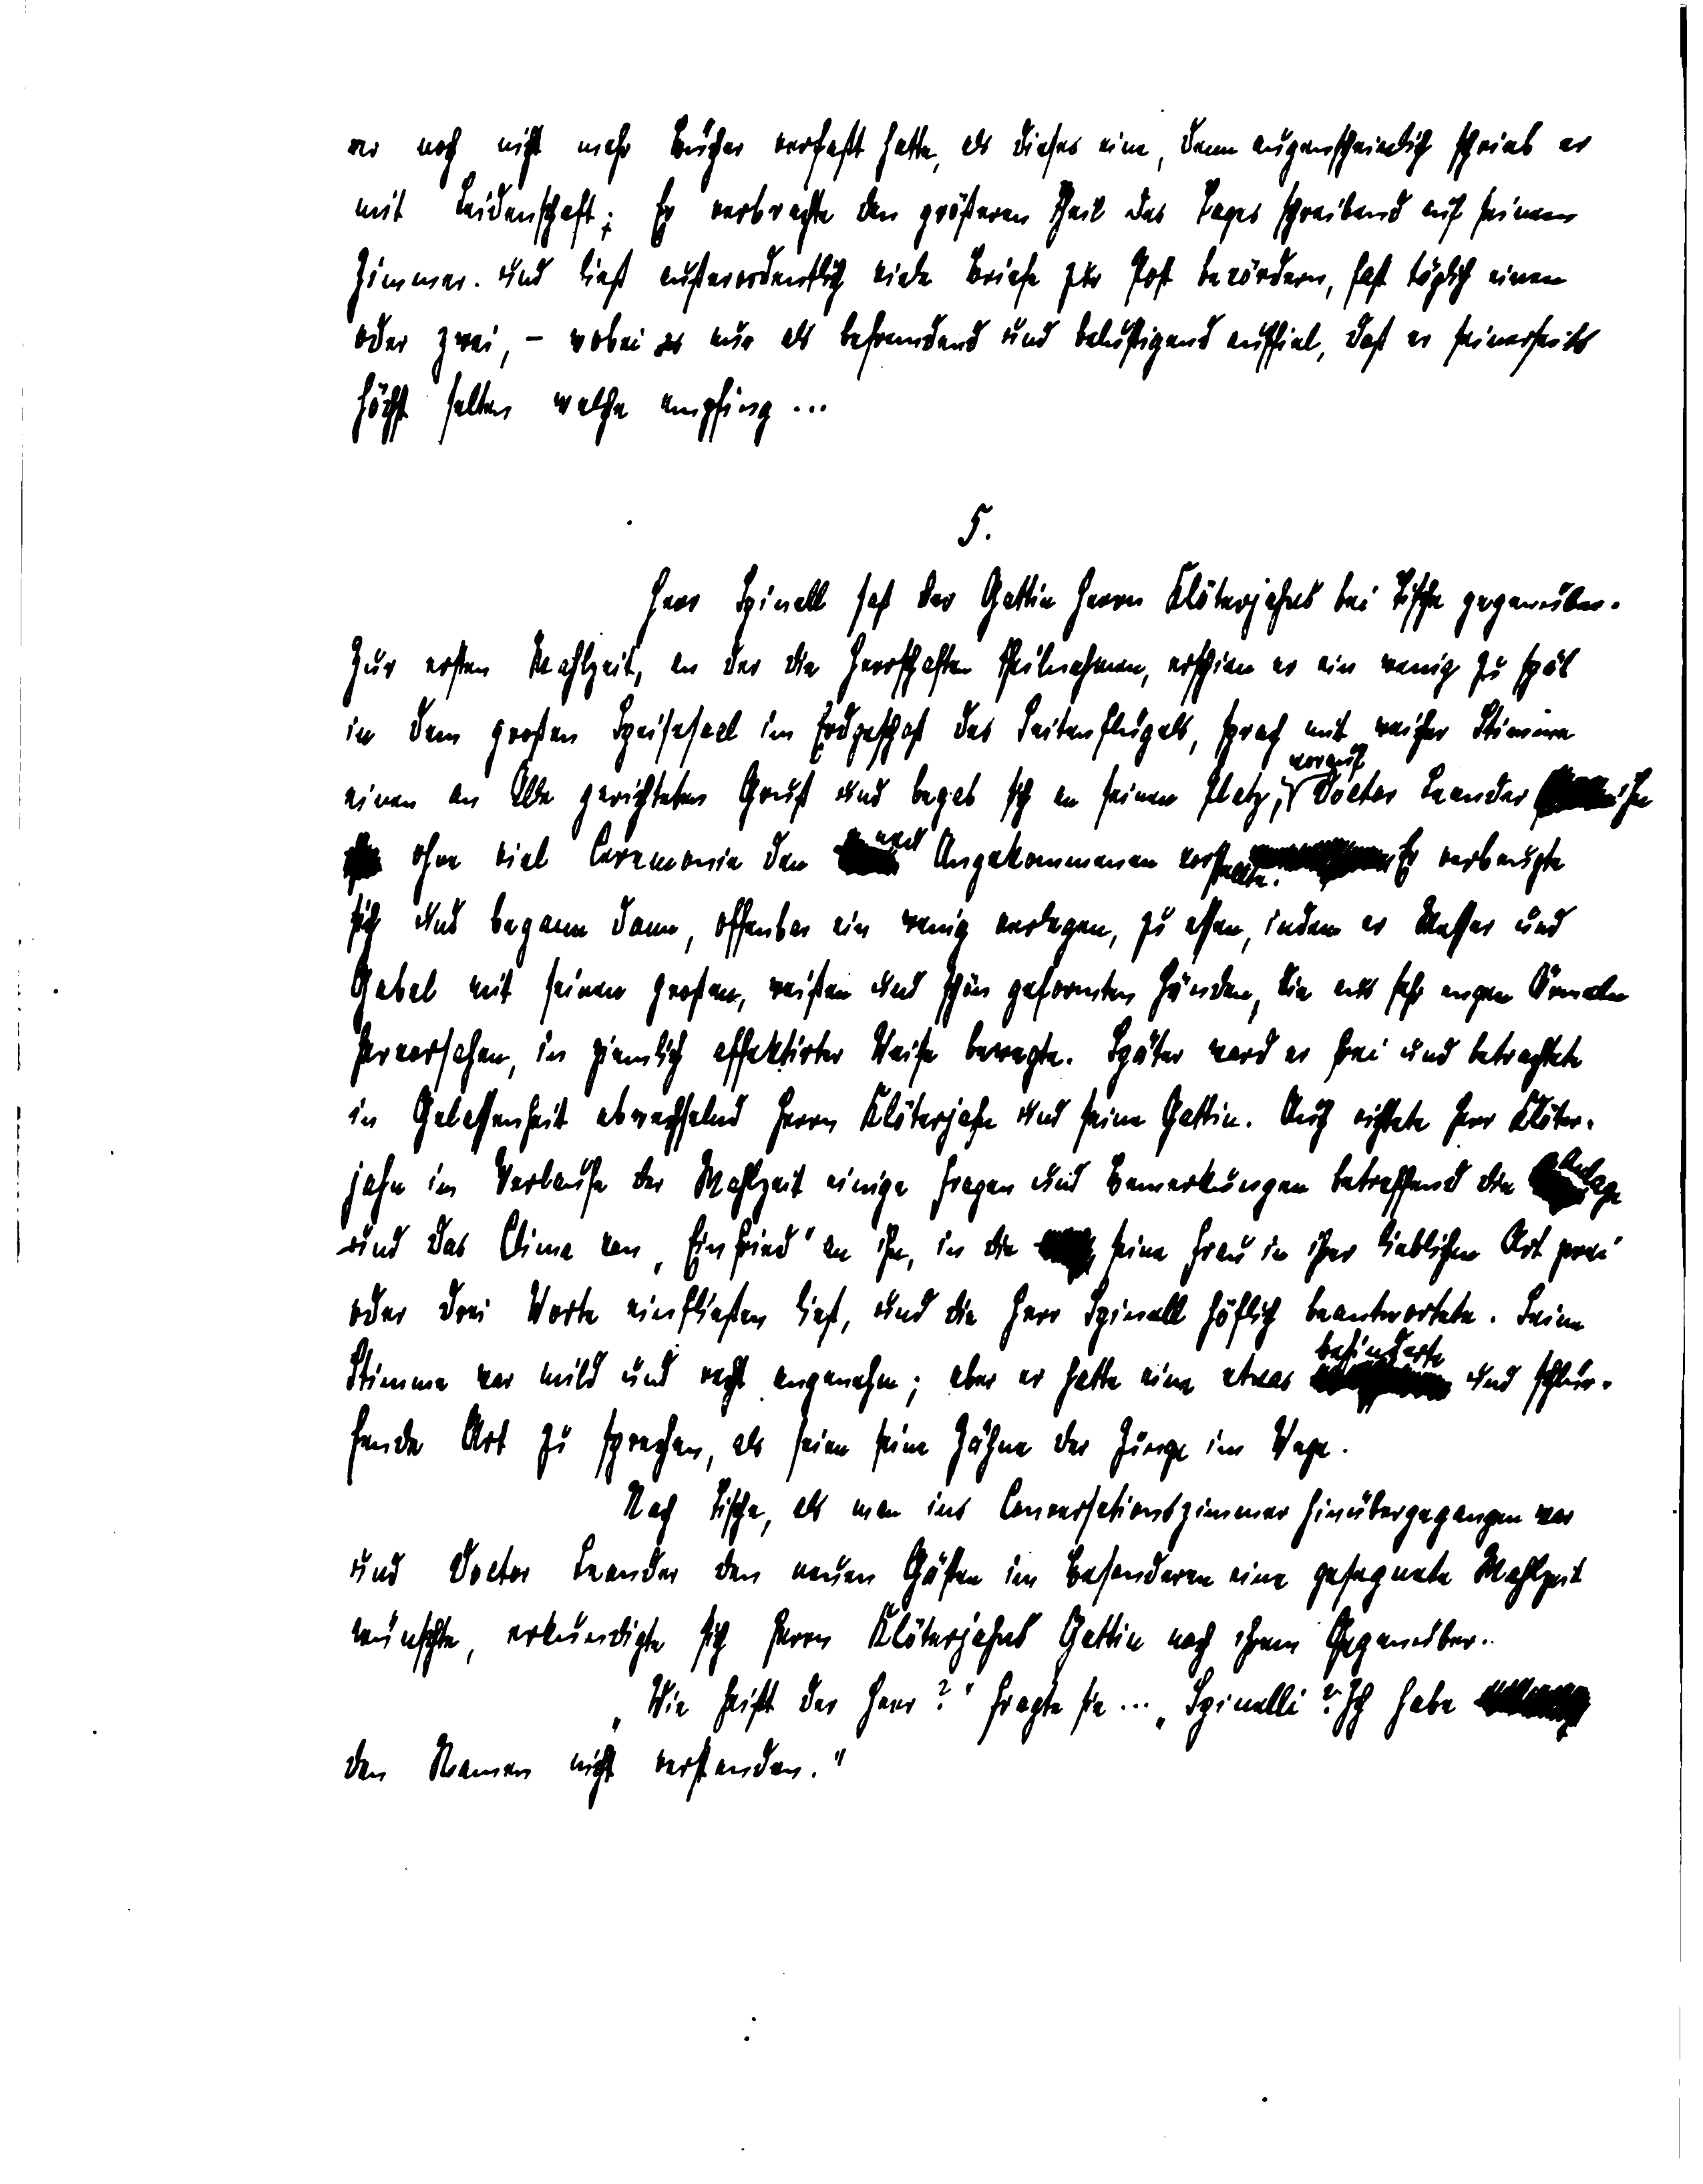 er noch nicht mehr Bücher verfaßt hatte, als dieses eine, denn augenscheinlich schrieb er
mit Leidenschaft; Er verbrachte den größeren Theil des Tages schreibend auf seinem
Zimmer. und ließ außerordentlich viele Briefe zur Post befördern, fast täglich einen
oder zwei, – wobei es nur als befremdend und belustigend auffiel, daß er seinerseits
höchst selten welche empfing ...
5.
Herr Spinell saß der Gattin Herrn Klöterjahns bei Tische gegenüber.
Zur ersten Mahlzeit, an der die Herrschaften theilnahmen, erschien er ein wenig zu spät
in dem großen Speisesaal im Erdgeschoß des Seitenflügels, sprach mit weicher Stimme
einen an Alle gerichteten Gruß und begab sich an seinen Platz, worauf Doctor Leander ihn
ohne viel Ceremonie den neu Angekommenen vorstellte. Er verbeugte
sich und begann dann, offenbar ein wenig verlegen, zu essen, indem er Messer und
Gabel mit seinen großen, weißen und schön geformten Händen, die aus sehr engen Ärmeln
hervorsahen, in ziemlich affektirter Weise bewegte. Später ward er frei und betrachtete
in Gelassenheit abwechselnd Herrn Klöterjahn und seine Gattin. Auch richtete Herr Klöter-
jahn im Verlaufe der Mahlzeit einige Fragen und Bemerkungen betreffend die Anlage
und das Clima von „Einfried" an ihn, in die seine Frau in ihrer lieblichen Art zwei
oder drei Worte einfließen ließ, und die Herr Spinell höflich beantwortete. Seine
Stimme war mild und recht angenehm; aber er hatte eine etwas behinderte und schlür-
fende Art zu sprechen, als seien seine Zähne der Zunge im Wege.
Nach Tische, als man ins Conversationszimmer hinübergegangen war
und Doctor Leander den neuen Gästen im Besonderen eine gesegnete Mahlzeit
wünschte, erkundigte sich Herrn Klöterjahns Gattin nach ihrem Gegenüber.
„Wie heißt der Herr?" fragte sie ... „Spinelli? Ich habe
den Namen nicht verstanden."